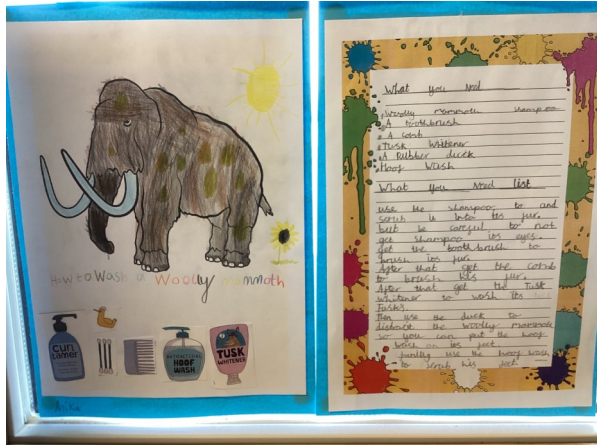 How to Wash a Woolly mammoth
CURL
TAMER
HOOF
WASH
TUSK
WHITENER
What you need
Woolly mammoth shampoo
A toothbrush
A comb
Tusk whitener
A Rubber duck
Hoof wash
What you need list
use the shampoo to and
scrub it into its fur.
but be careful to not
get shampoo its eyes.
get the toothbrush to
brush its fur.
After that get the comb
to brush its fur.
After that get the Tusk
whitener to wash its
Tusks.
Then use the duck to
distract the woolly mammoth
so you can put the hoof
wash on its feet.
use the hoof wash
to scrub his feet.